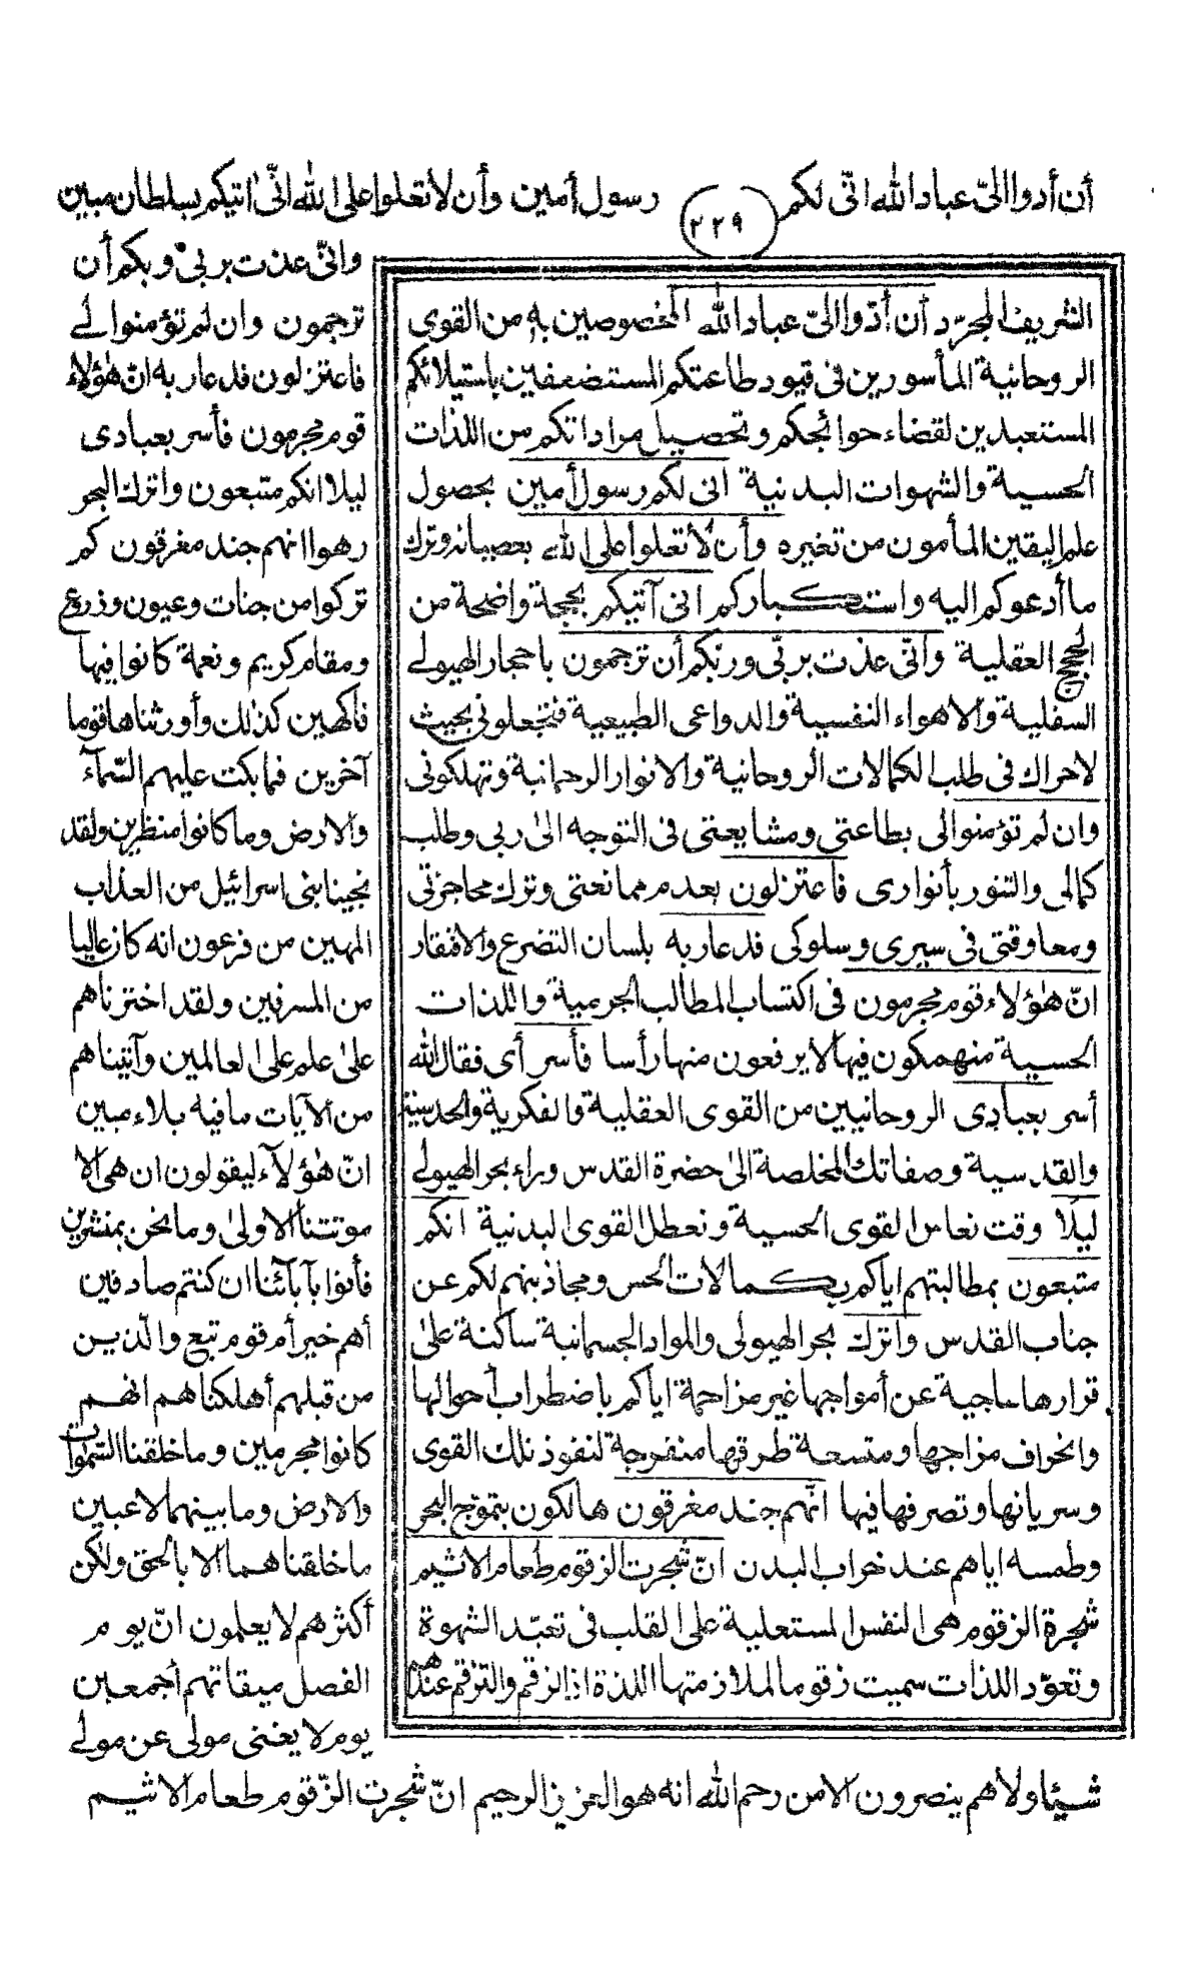 أن أدوا الىّ عباد الله انّى لكم
٢٢٩
رسول أمين وأن لا تعلوا على الله انّى اٰتيكم بسلطان مبين
وانّى عذت بربى وبكم أن
ترجمون وان لم تؤمنوا لى
فاعتزلون فدعا ربه انّ هٰؤلاء
قوم مجرمون فأسر بعبادى
ليلا انكم متبعون واترك البحر
رهوا انهم جند مغرقون كم
تركوا من جنات وعيون وزروع
ومقام كريم ونعمة كانوا فيها
فاكهين كذلك وأورثناها قوما
آخرين فما بكت عليهم السّمآء
والارض وما كانوا منظرين ولقد
نجينا بنى اسرائيل من العذاب
المهين من فرعون انه كان عاليا
من المسرفين ولقد اخترناهم
علىٰ علم على العالمين وآتيناهم
من الآيات ما فيه بلاء مبين
انّ هٰؤلآء ليقولون ان هى الا
موتتنا الاولىٰ وما نحن بمنشرين
فأتوا بآبآئنا ان كنتم صادقين
أهم خير أم قوم تبع والّذين
من قبلهم أهلكناهم انهم
كانوا مجرمين وما خلقنا السّموات
والارض وما بينهما لاعبين
ما خلقناهما الا بالحق ولٰكن
أكثرهم لا يعلمون انّ يوم
الفصل ميقاتهم أجمعين
يوم لا يغنى مولى عن مولى
الشريف المجرّد أن أدّوا الىّ عباد الله المخصوصين به من القوى
الروحانية المأسورين فى قيود طاعتكم المستضعفين باستيلائكم
المستعبدين لقضاء حوائجكم وتحصيل مراداتكم من اللذات
الحسية والشهوات البدنية انى لكم رسول أمين بحصول
علم اليقين المأمون من تغيره وأن لا تعلوا على الله بعصيانه وترك
ما أدعوكم اليه واستكباركم انى آتيكم بحجة واضحة من
الحجج العقلية وانّى عذت بربّى وربكم أن ترجمون باحجار الهيولى
السفلية والاهواء النفسية والدواعى الطبيعية فتجعلونى بحيث
لا حراك فى طلب الكمالات الروحانية والانوار الرحمانية وتهلكونى
وان لم تؤمنوا لى بطاعتى ومشايعتى فى التوجه الىٰ ربى وطلب
كمالى والتنور بأنوارى فاعتزلون بعدم ممانعتى وترك محاجزتى
ومعاوقتى فى سيرى وسلوكى فدعا ربه بلسان التضرع والافتقار
انّ هٰؤلاء قوم مجرمون فى اكتساب المطالب الجرمية واللذات
الحسية منهمكون فيها لا يرفعون منها رأسا فأسر أى فقال الله
أسر بعبادى الروحانيين من القوى العقلية والفكرية والحدسية
والقدسية وصفاتك المخلصة الىٰ حضرة القدس وراء بحر الهيولى
ليلا وقت نعاس القوى الحسية وتعطل القوى البدنية انكم
متبعون بمطالبتهم اياكم بكمالات الحس ومجاذبتهم لكم عن
جناب القدس واترك بحر الهيولى والمواد الجسمانية ساكنة علىٰ
قرارها ساجية عن أمواجها غير مزاحمة اياكم باضطراب أحوالها
وانحراف مزاجها ومتسعة طرقها منفرجة لنفوذ تلك القوى
وسريانها وتصرفها فيها انّهم جند مغرقون هالكون بتموّج البحر
وطمسه اياهم عند خراب البدن انّ شجرت الزقوم طعام الاثيم
شجرة الزقوم هى النفس المستعلية على القلب فى تعبّد الشهوة
وتعوّد اللذات سميت زقوما لملازمتها اللذة اذ الزقم والتزقم عندهم
شيئا ولا هم ينصرون الا من رحم الله انه هو العزيز الرحيم انّ شجرت الزّقوم طعام الاثيم